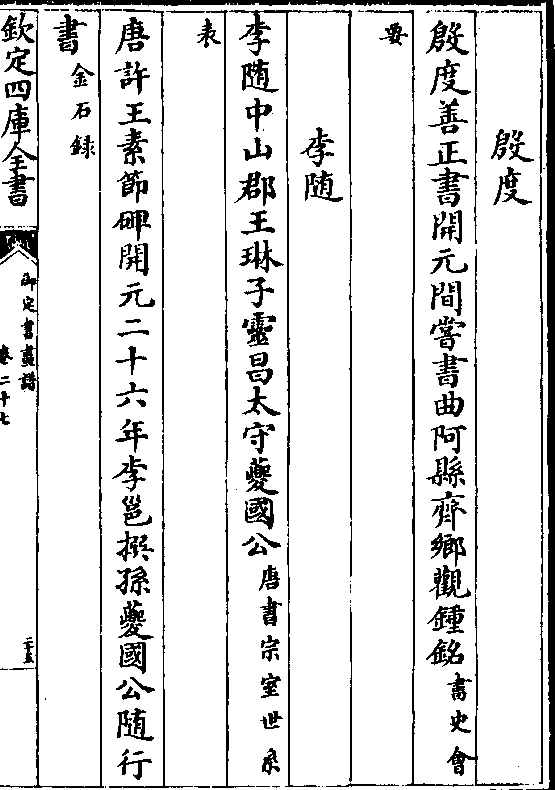 殷度
殷度善正書開元間嘗書曲阿縣齊鄉觀鍾銘書史會
要
李随
李随中山郡王琳子靈昌太守夔國公唐書宗室世系
表
唐許王素節碑開元二十六年李邕撰孫夔國公随行
書金石録
欽定四庫全書
御定書畫譜
卷二十七
二十五